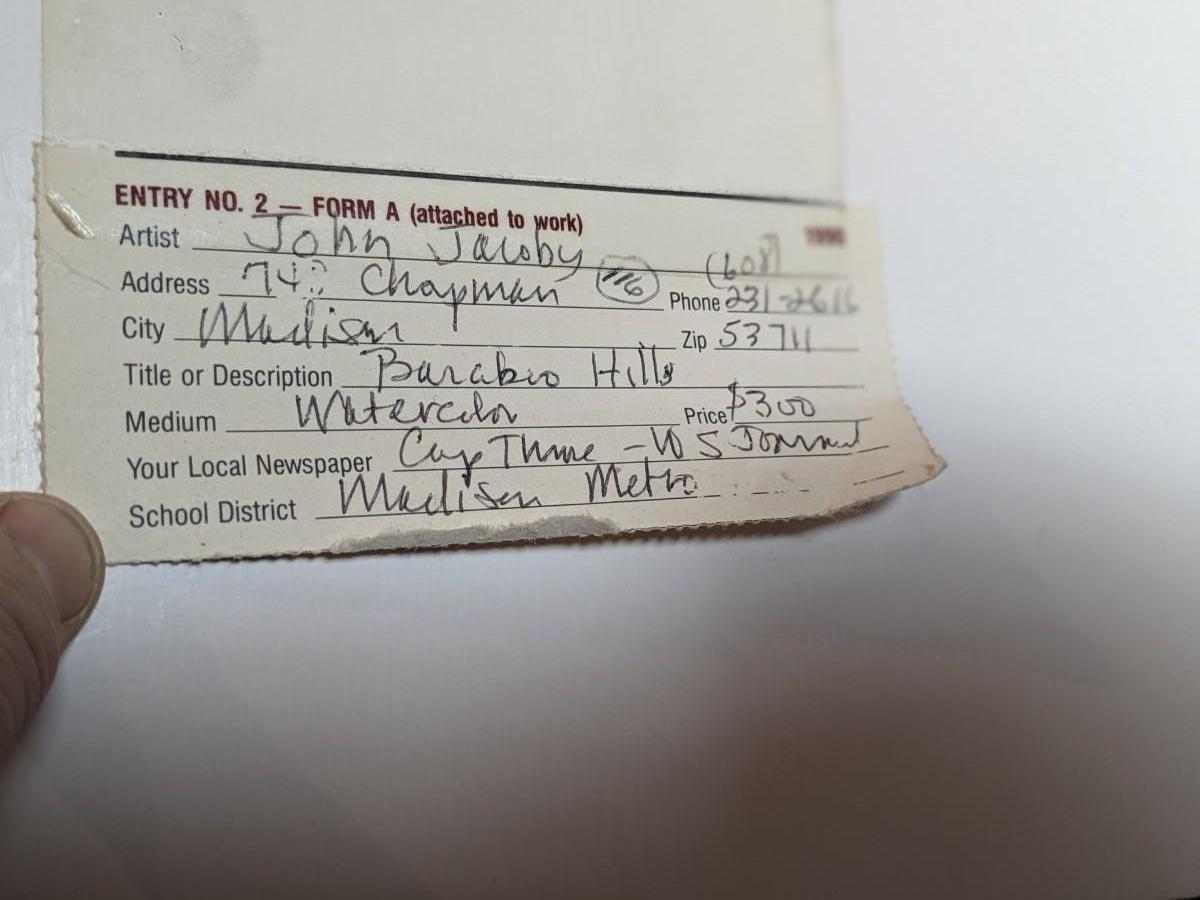 ENTRY NO. 2 — FORM A (attached to work) 1990
Artist John Jacoby
Address Chapman Phone (608) 231-2616
City Madison Zip 53711
Title or Description Baraboo Hills
Medium Watercolor Price $300
Your Local Newspaper Cap Times - W S Journal
School District Madison Metro